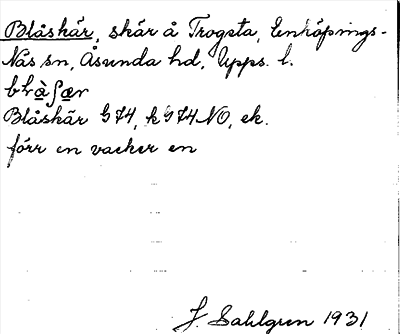 Blåskär, skär å Trogsta, Enköpings-
Näs sn, Åsunda hd, Upps. l.
Blåskär G74, k G74 NO, ek.
förr en vacker en
J. Sahlgren 1931